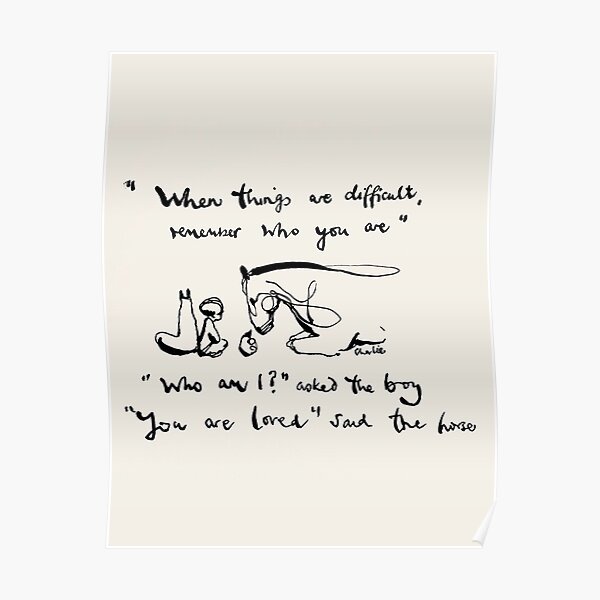 " When things are difficult,
remember who you are"
charlie
"Who am I?" asked the boy
"You are loved" said the horse